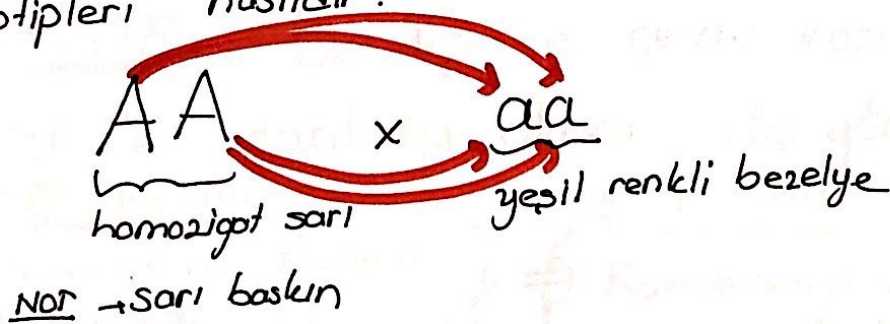 nasıldır.
AA x aa
homozigot sarı
yeşil renkli bezelye
NOT → sarı baskın